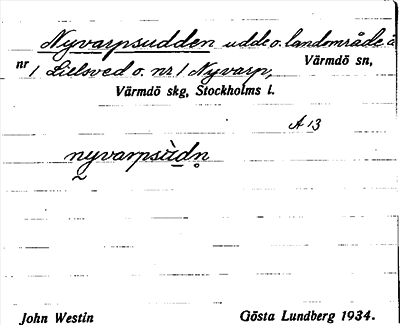 Nyvarpsudden udde o. landområde å
nr 1 Lielsved o. nr 1 Nyvarp, Värmdö sn,
Värmdö skg, Stockholms l.
A 13
nyvarpsùdn
John Westin Gösta Lundberg 1934.